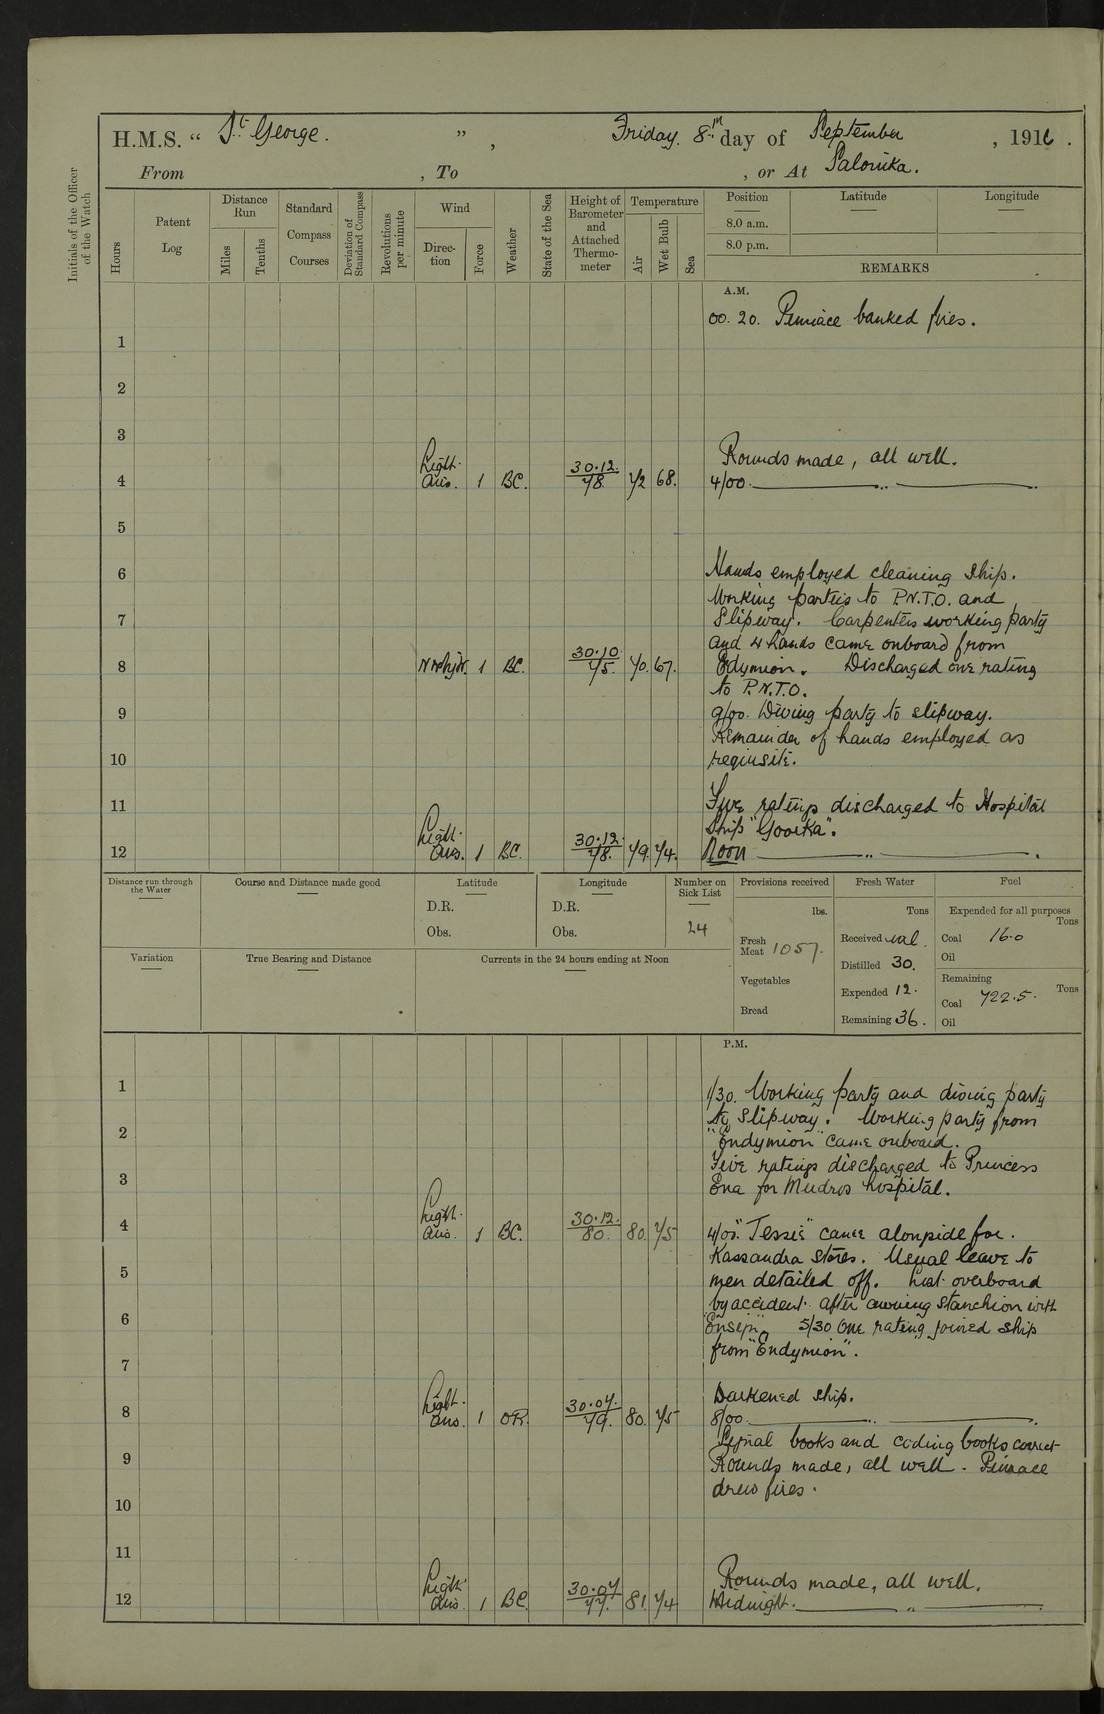 H.M.S. “ St George. ”, Friday. 8th day of September, 1916.
From , To , or At Salonika.
Initials of the Officer of the Watch
Hours
Patent Log
Distance Run
Miles
Tenths
Standard Compass Courses
Deviation of Standard Compass
Revolutions per minute
Wind
Direction
Force
Weather
State of the Sea
Height of Barometer and Attached Thermometer
Temperature
Air
Wet Bulb
Sea
Position Latitude Longitude
8.0 a.m.
8.0 p.m.
REMARKS
A.M.
00.20. Pinnace banked fires.
1
2
3
Light Rounds made, all well.
4 airs. 1 BC. 30.12./78. 72 68. 4/00. ———— „ ————
5
6 Hands employed cleaning ship.
Working parties to P.N.T.O. and
7 Slipway. Carpenters working party
and 4 hands came onboard from
8 1 BC. 30.10/75. 70. 67. Edymion. Discharged one rating
to P.N.T.O.
9 9/00. Diving party to slipway.
Remainder of hands employed as
10 requisite.
11 Five ratings discharged to Hospital
Light Ship "Goorka".
12 airs. 1 BC. 30.12/78. 79. 74. Noon ———— „ ————.
Distance run through the Water
Course and Distance made good
Latitude
D.R.
Obs.
Longitude
D.R.
Obs.
Number on Sick List
24
Provisions received
lbs.
Fresh Meat 1057.
Vegetables
Bread
Fresh Water
Tons
Received nil.
Distilled 30.
Expended 12.
Remaining 36.
Fuel
Expended for all purposes
Tons
Coal 16.0
Oil
Remaining
Tons
Coal 722.5.
Oil
Variation
True Bearing and Distance
Currents in the 24 hours ending at Noon
P.M.
1 1/30. Working party and diving party
to Slipway. Working party from
2 "Endymion" came onboard.
Five ratings discharged to Princess
3 Ena for Mudros hospital.
Light
4 airs. 1 BC. 30.12./80. 80. 75 4/00. "Jessie" came alongside for
Kassandra Stores. Usual leave to
5 men detailed off. Lost overboard
by accident after awning stanchion with
6 5/30 One rating joined ship
from "Endymion".
7
Light Darkened ship.
8 airs. 1 OR. 30.07./79. 80. 75 8/00. ———— „ ————
Signal books and coding books correct
9 Rounds made, all well. Pinnace
drew fires.
10
11
Light Rounds made, all well.
12 airs. 1 BC. 30.07/77. 81. 74 Midnight. ———— „ ————